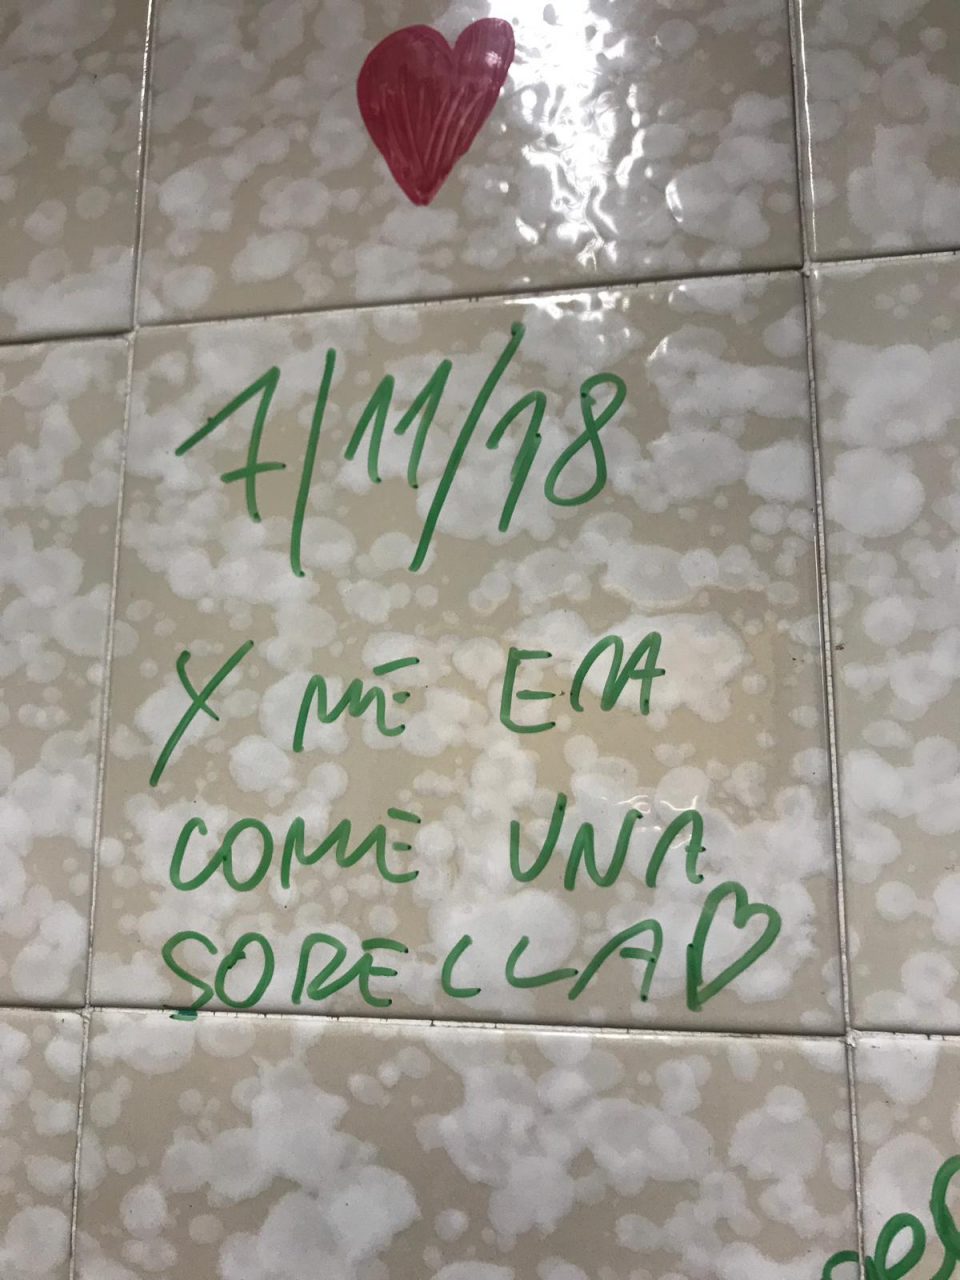 7/11/18
X ME EMA
COME UNA
SORELLA